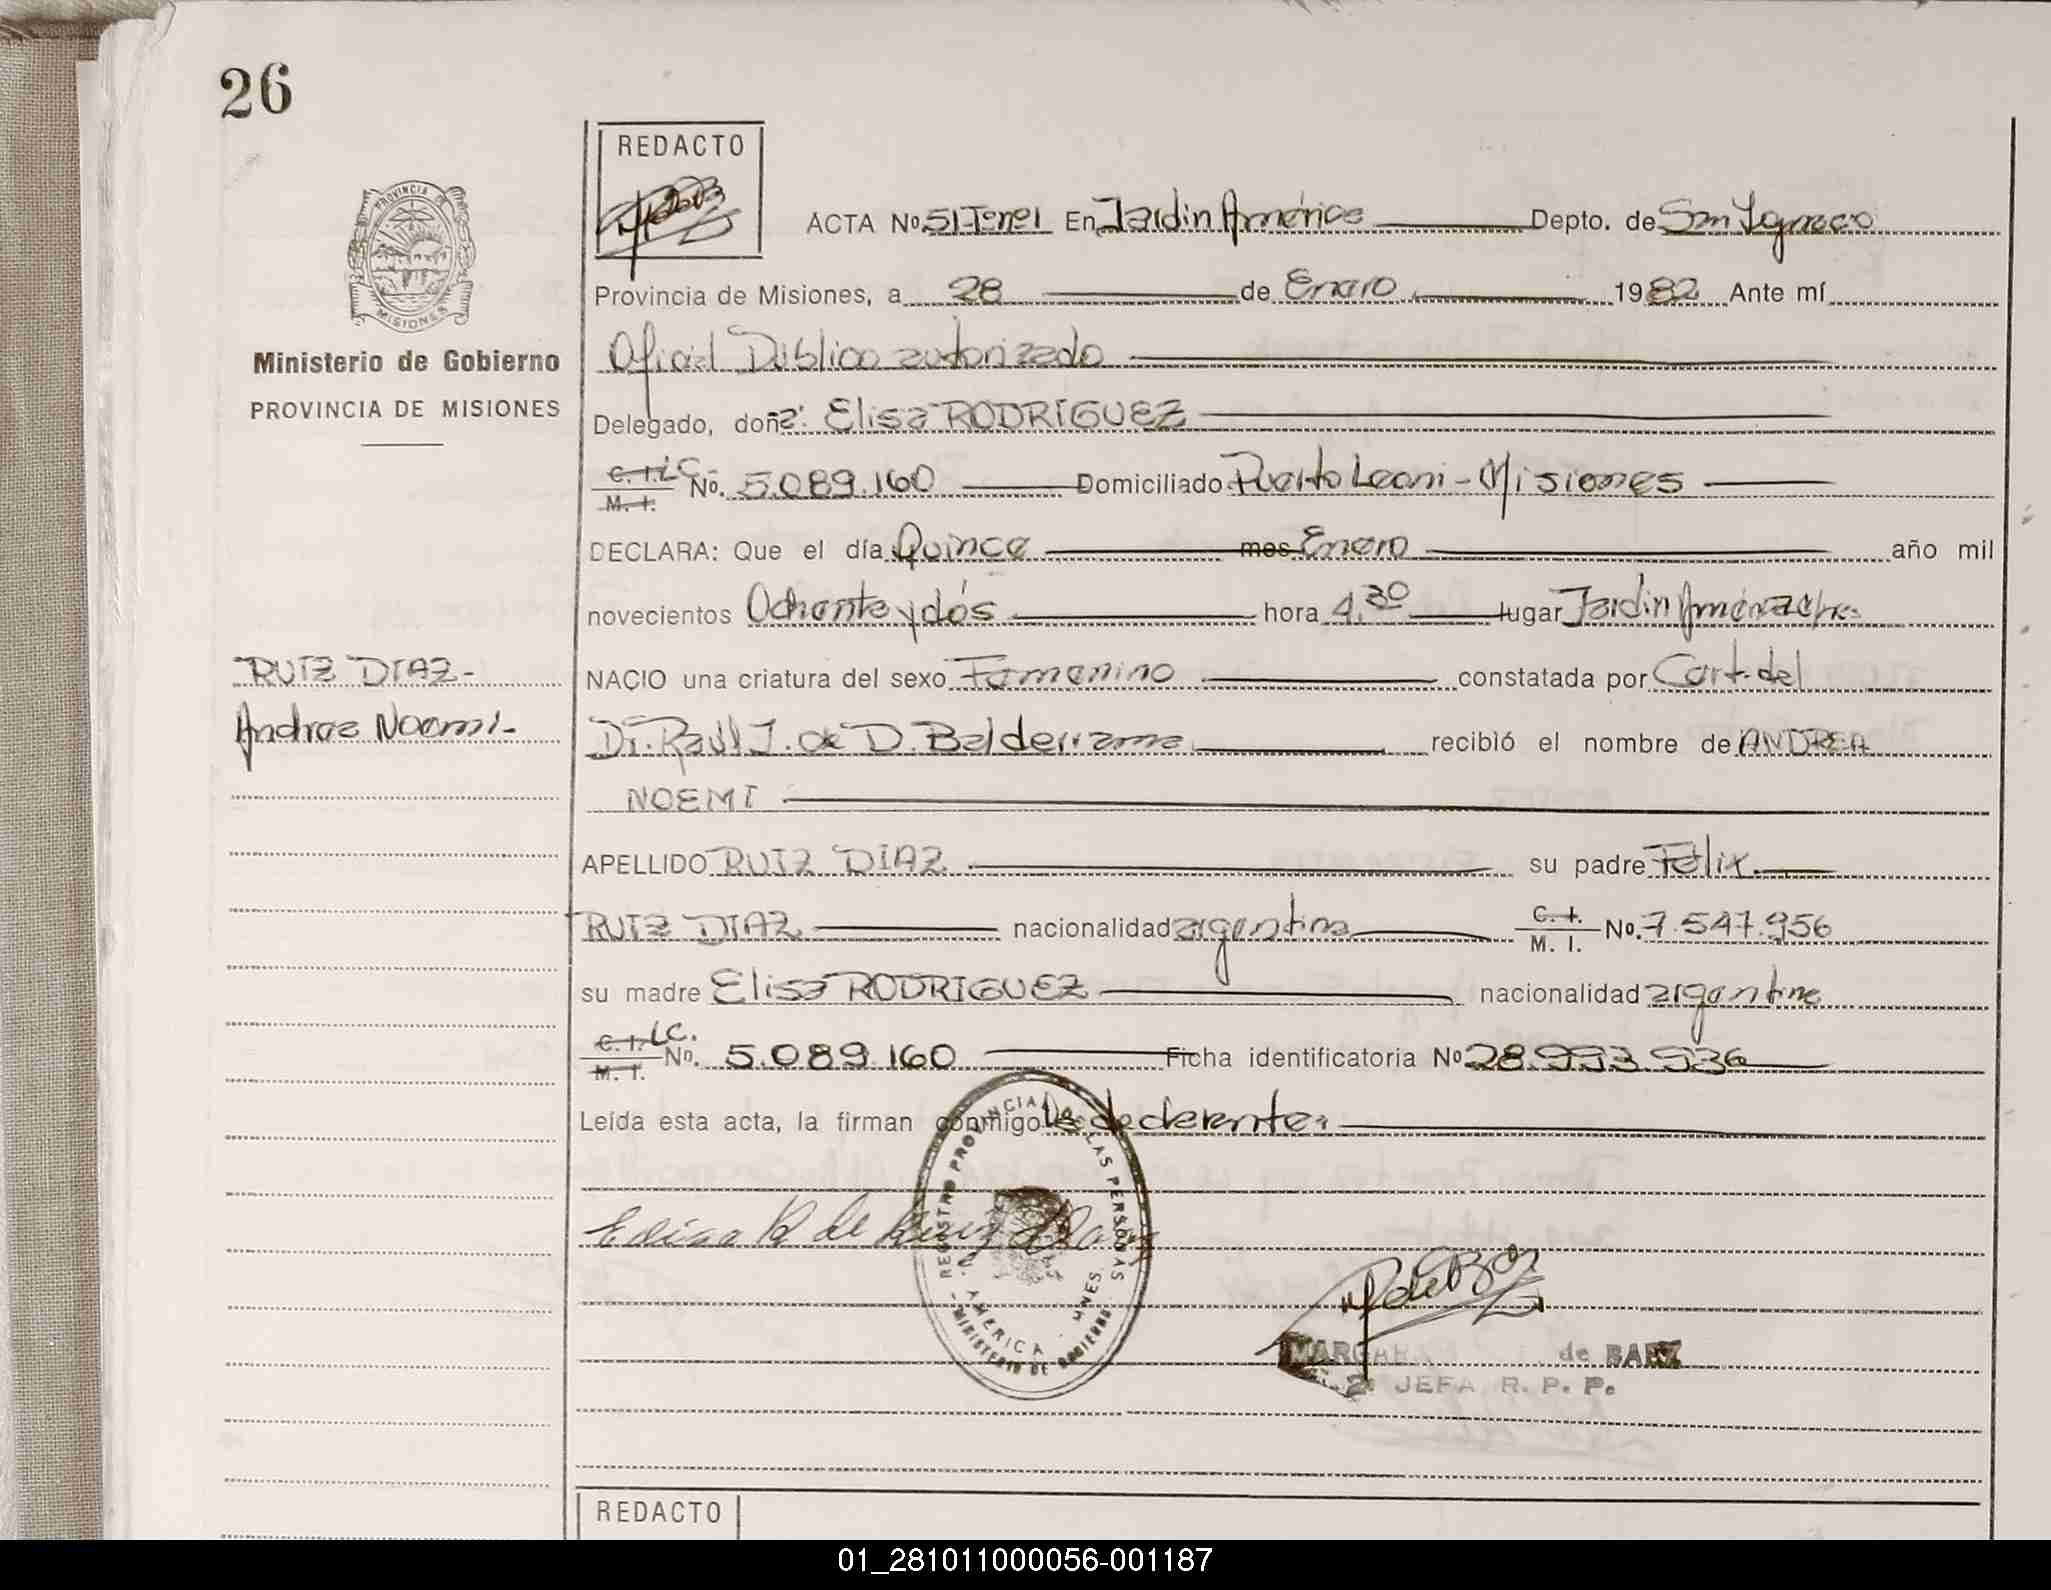 26
REDACTO
PROVINCIA DE
MISIONES
Ministerio de Gobierno
PROVINCIA DE MISIONES
ACTA No 51-T°nº1 En Jardin América Depto. de San Ignacio
Provincia de Misiones, a 28 de Enero 1982 Ante mí
Oficial Público autorizado
Delegado, doña: Elisa RODRIGUEZ
C. I. LC. M. I. No. 5.089.160 Domiciliado Puerto Leoni - Misiones
DECLARA: Que el día Quince mes Enero año mil
novecientos Ochenta y dós hora 4,30 lugar Jardin América
RUIZ DIAZ-
Andrea Noemi-
NACIO una criatura del sexo Femenino constatada por Cert. del
Dr. Raúl J. de D. Balderrama recibió el nombre de ANDREA
NOEMI
APELLIDO RUIZ DIAZ su padre Félix
RUIZ DIAZ nacionalidad argentina C. I. M. I. No. 7.547.956
su madre Elisa RODRIGUEZ nacionalidad argentina
C. I. LC. M. I. No. 5.089.160 Ficha identificatoria No 28.993.936
Leída esta acta, la firman conmigo la declarante.
REGISTRO PROVINCIAL DE LAS PERSONAS
J. AMERICA - MNES.
MINISTERIO DE GOBIERNO
Elisa R de Ruiz Diaz
de BAEZ
2ª JEFA R. P. P.
REDACTO
01_281011000056-001187